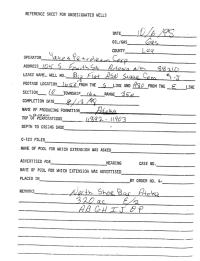 REFERENCE SHEET FOR UNDESIGNATED WELLS
DATE 10/6/95
OIL/GAS Gas
COUNTY Lea
OPERATOR Yates Petroleum Corp
ADDRESS 105 S. Fourth St. Artesia NM 88210
LEASE NAME, WELL NO. Big Flat State Com
FOOTAGE LOCATION FROM THE S LINE AND FROM THE E LINE
SECTION TOWNSHIP 16s RANGE 35e
COMPLETION DATE
NAME OF PRODUCING FORMATION Atoka
TOP OF PERFORATIONS 11882 - 11903
DEPTH TO CASING SHOE
C-123 FILED
NAME OF POOL FOR WHICH EXTENSION WAS ASKED
ADVERTISED FOR HEARING CASE NO.
NAME OF POOL FOR WHICH EXTENSION WAS ADVERTISED
PLACED IN BY ORDER NO. R-
REMARKS North Shoe Bar Atoka
320 ac E/2
A B G H I J O P